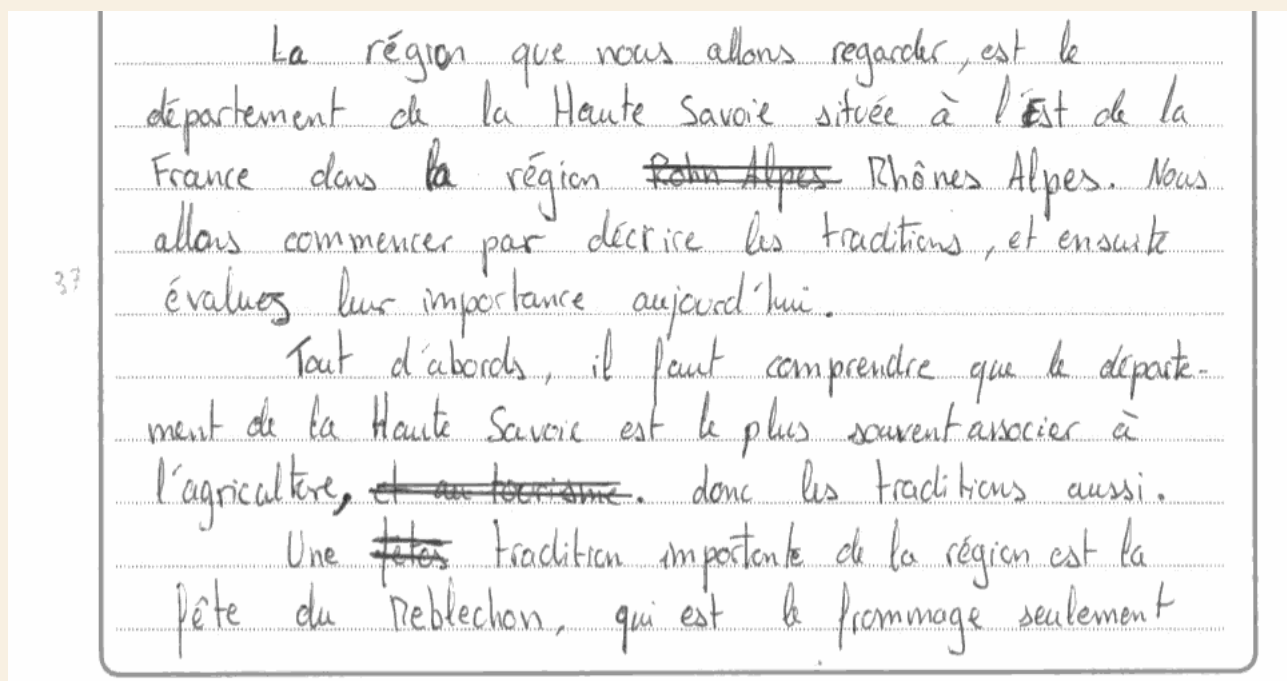 La région que nous allons regarder, est le
département de la Haute Savoie située à l'Est de la
France dans la région ~~Rohn Alpes~~ Rhônes Alpes. Nous
allons commencer par décrire les traditions, et ensuite
37
évaluer leur importance aujourd'hui.
Tout d'abords, il faut comprendre que le départe-
ment de la Haute Savoie est le plus souvent associer à
l'agriculture, ~~et au tourisme~~. donc les traditions aussi.
Une ~~fetes~~ tradition importante de la région est la
fête du Reblechon, qui est le frommage seulement